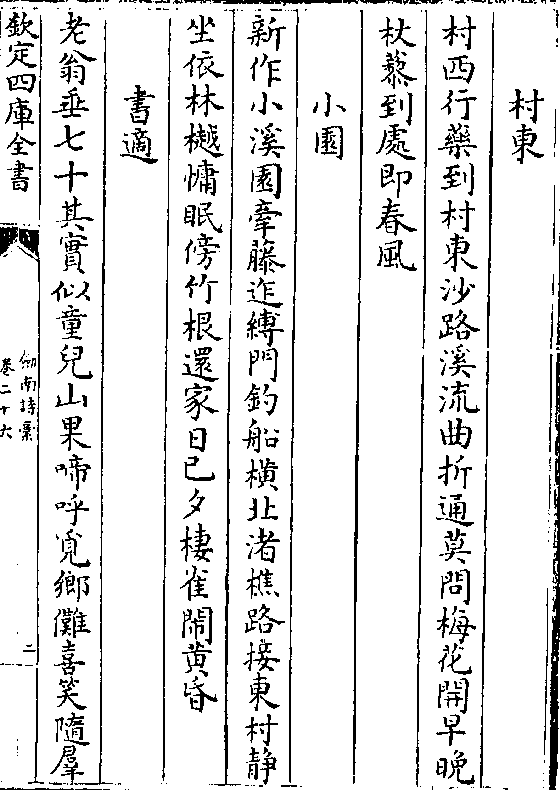 村東
村西行藥到村東沙路溪流曲折通莫問梅花開早晚
杖藜到處即春風
小園
新作小溪園牽藤迮縛門釣船橫北渚樵路接東村静
坐依林樾慵眠傍竹根還家日已夕棲雀鬧黄昏
書適
老翁垂七十其實似童兒山果啼呼覓鄉儺喜笑隨羣
欽定四庫全書
劒南詩藳
卷二十六
二